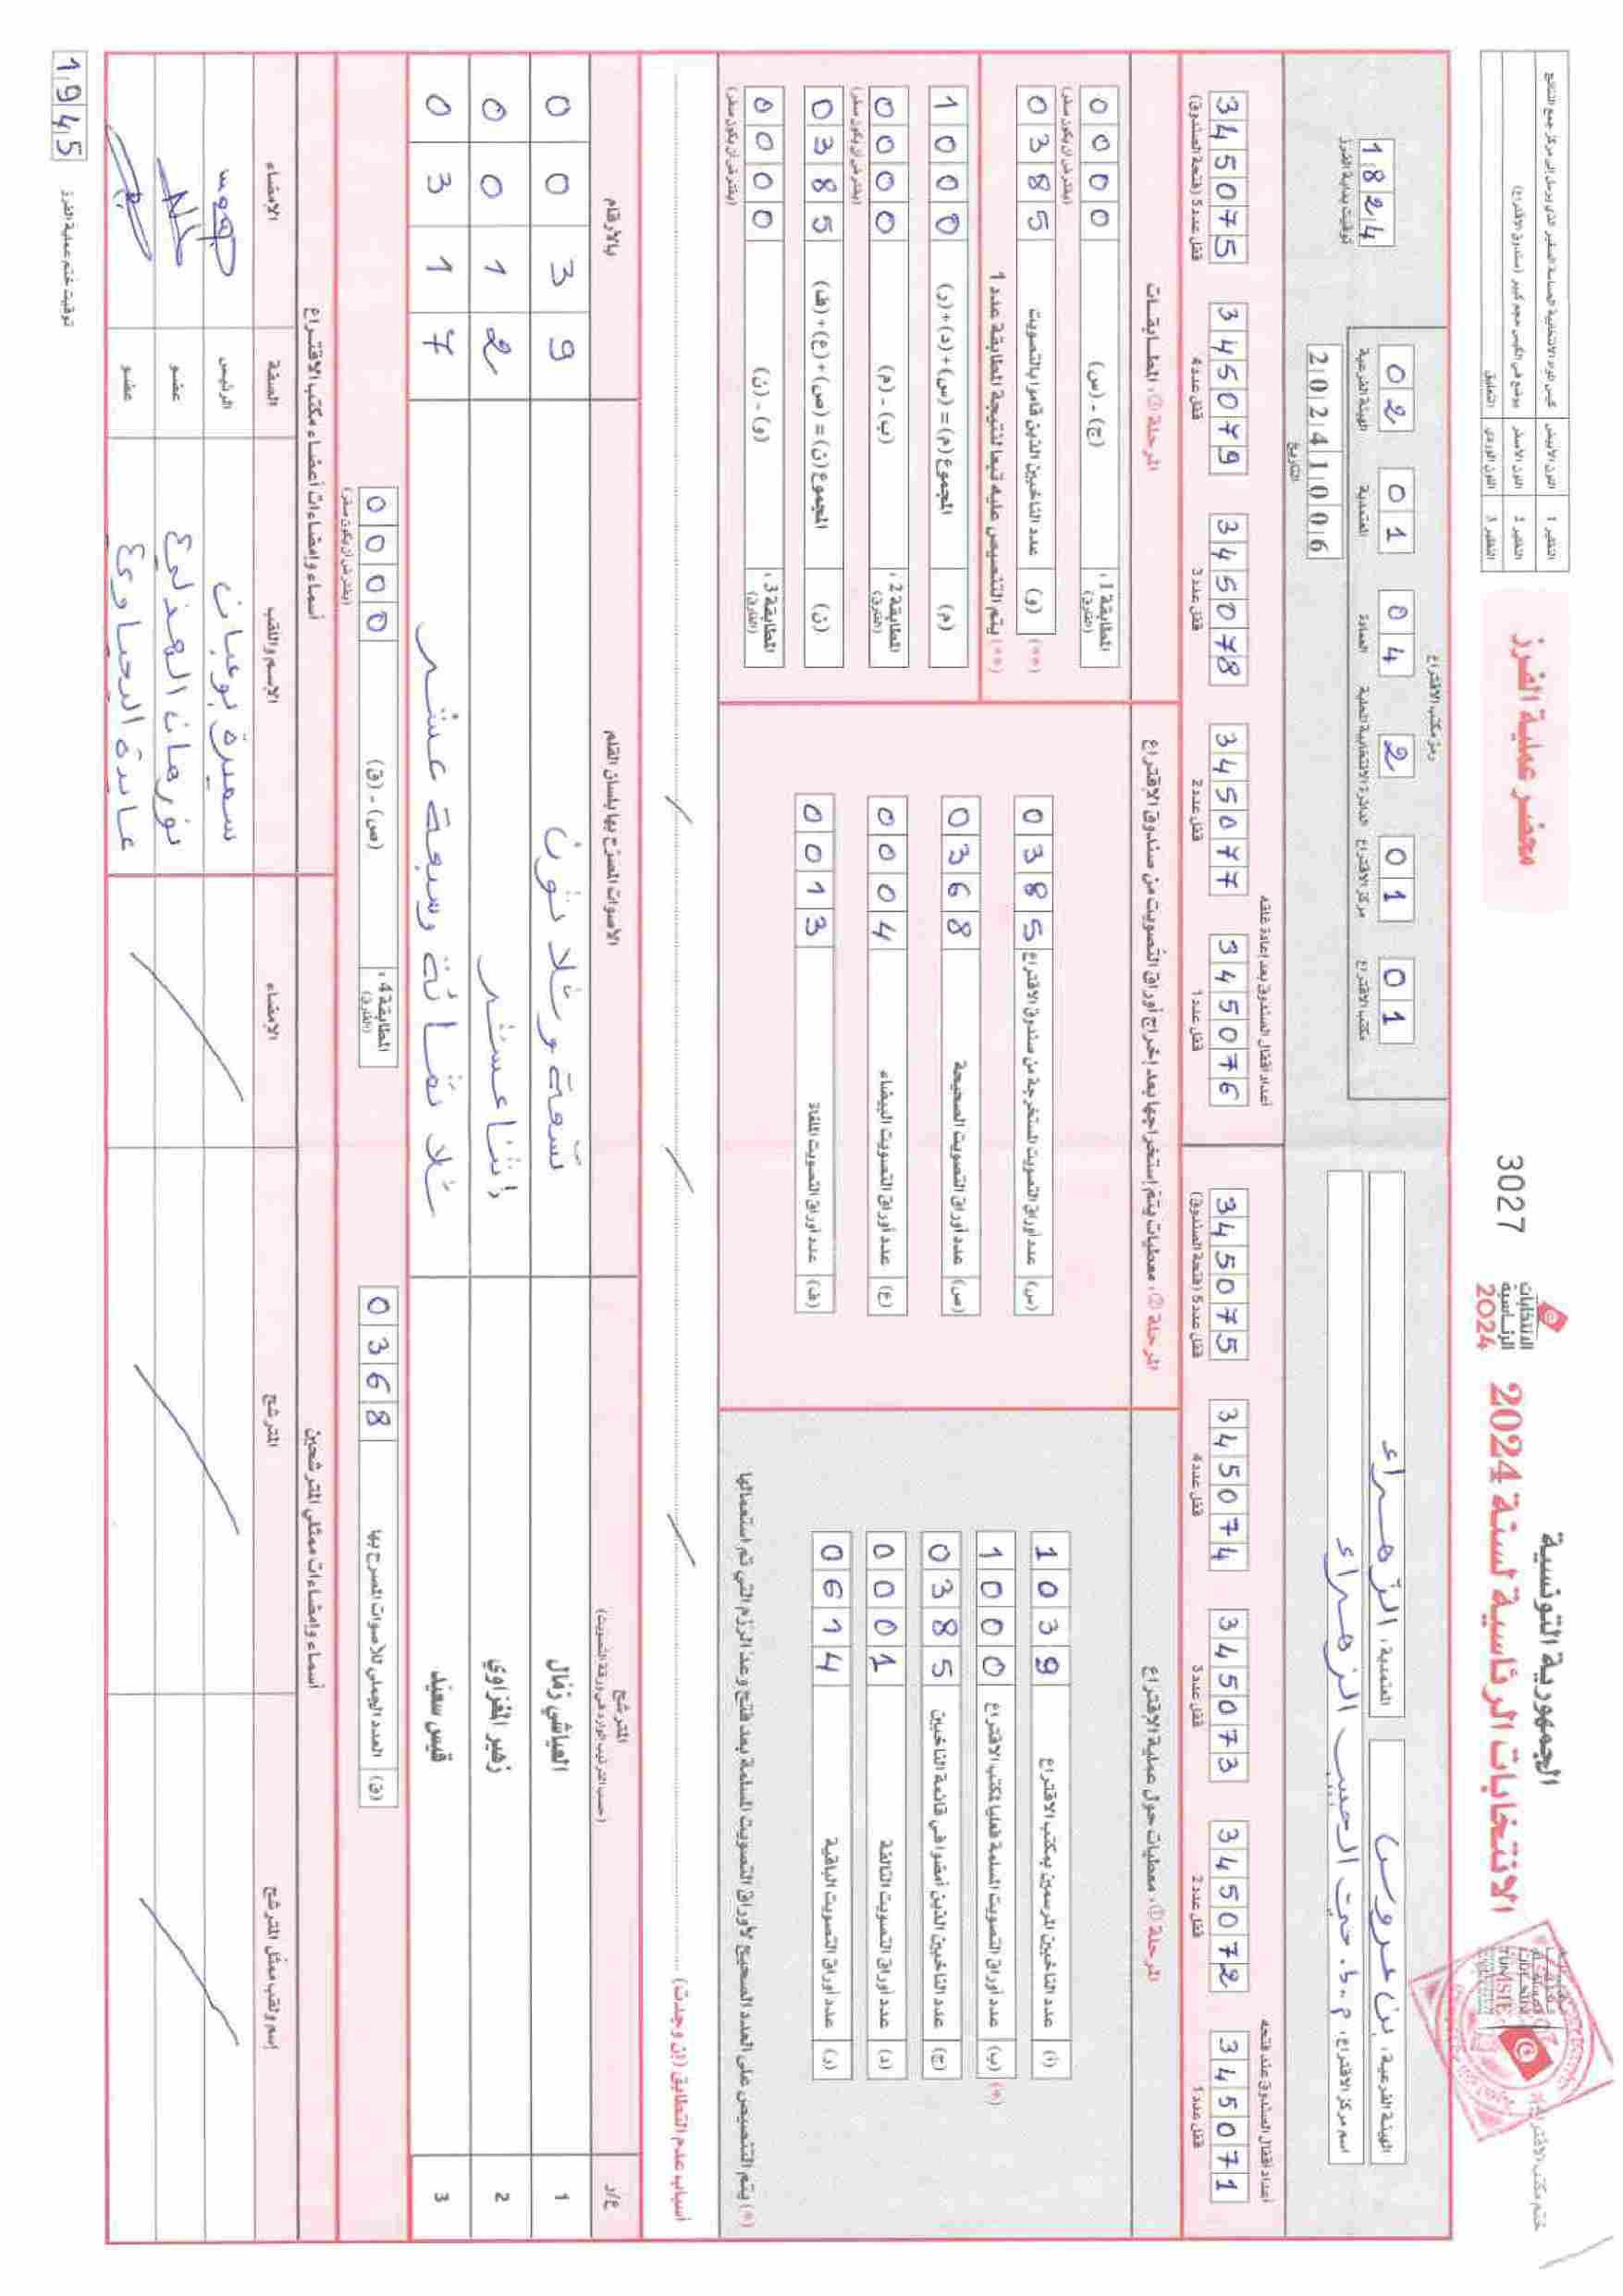 الجمهورية التونسية
الانتخابات الرئاسية لسنة 2024
الانتخابات الرئاسية 2024
3027
محضر عملية الفرز
النظير 1 اللون الأبيض
النظير 2 اللون الأصفر
النظير 3 اللون الوردي التعليق
ختم مكتب الاقتراع
الهيئة الفرعية: بن عروس
المعتمدية: الزهراء
اسم مركز الاقتراع: م. إ. حي الحبيب الزهراء
رمز مكتب الاقتراع
02 01 04 2 01 01
الهيئة الفرعية المعتمدية العمادة الدائرة الانتخابية المحلية مركز الاقتراع مكتب الاقتراع
20241006
التاريخ
1824
توقيت بداية الفرز
أعداد أقفال الصندوق عند فتحه
345071 345072 345073 345074 345075
قفل عدد 1 قفل عدد 2 قفل عدد 3 قفل عدد 4 قفل عدد 5 (فتحة الصندوق)
أعداد أقفال الصندوق بعد إعادة غلقه
345076 345077 345078 345079 345075
قفل عدد 1 قفل عدد 2 قفل عدد 3 قفل عدد 4 قفل عدد 5 (فتحة الصندوق)
المرحلة ①: معطيات حول عملية الاقتراع
(أ) عدد الناخبين المرسمين بمكتب الاقتراع 1039
(ب) عدد أوراق التصويت المسلمة فعليا لمكتب الاقتراع 1000 (*)
(ج) عدد الناخبين الذين أمضوا في قائمة الناخبين 0385
(د) عدد أوراق التصويت التالفة 0001
(ر) عدد أوراق التصويت الباقية 0614
(*) يتم التنصيص على العدد الصحيح لأوراق التصويت المسلمة بعد فتح وعد الرزم التي تم استعمالها
المرحلة ②: معطيات يتم إستخراجها بعد إخراج أوراق التصويت من صندوق الاقتراع
(س) عدد أوراق التصويت المستخرجة من صندوق الاقتراع 0385
(ص) عدد أوراق التصويت الصحيحة 0368
(ع) عدد أوراق التصويت البيضاء 0004
(ف) عدد أوراق التصويت الملغاة 0013
المرحلة ③: المطابقات
المطابقة 1: (الفارق) (ج) - (س) 0000
(يفترض أن يكون صفر)
(**) (و) عدد الناخبين الذين قاموا بالتصويت 0385
(**) يتم التنصيص عليه تبعا لنتيجة المطابقة عدد 1
(م) المجموع (م) = (س) + (د) + (ر) 1000
المطابقة 2: (الفارق) (ب) - (م) 0000
(يفترض أن يكون صفر)
(ن) المجموع (ن) = (ص) + (ع) + (ف) 0385
المطابقة 3: (الفارق) (و) - (ن) 0000
(يفترض أن يكون صفر)
أسباب عدم التطابق (إن وجدت)
ع/ر المترشح الأصوات المصرح بها بلسان القلم بالأرقام
(حسب الترتيب الوارد في ورقة التصويت)
1 العياشي زمال تسعة وثلاثون 0039
2 زهير المغزاوي إثنا عشر 0012
3 قيس سعيد ثلاثمائة وسبعة عشر 0317
(ق) العدد الجملي للأصوات المصرح بها 0368
المطابقة 4: (الفارق) (ص) - (ق) 0000
(يفترض أن يكون صفر)
أسماء وإمضاءات ممثلي المترشحين
إسم ولقب ممثل المترشح المترشح الإمضاء
أسماء وإمضاءات أعضاء مكتب الاقتراع
الإسم واللقب الصفة الإمضاء
سميرة بوعبان الرئيس
نورهان الهذلي عضو
عايدة اليحياوي عضو
1945
توقيت ختم عملية الفرز